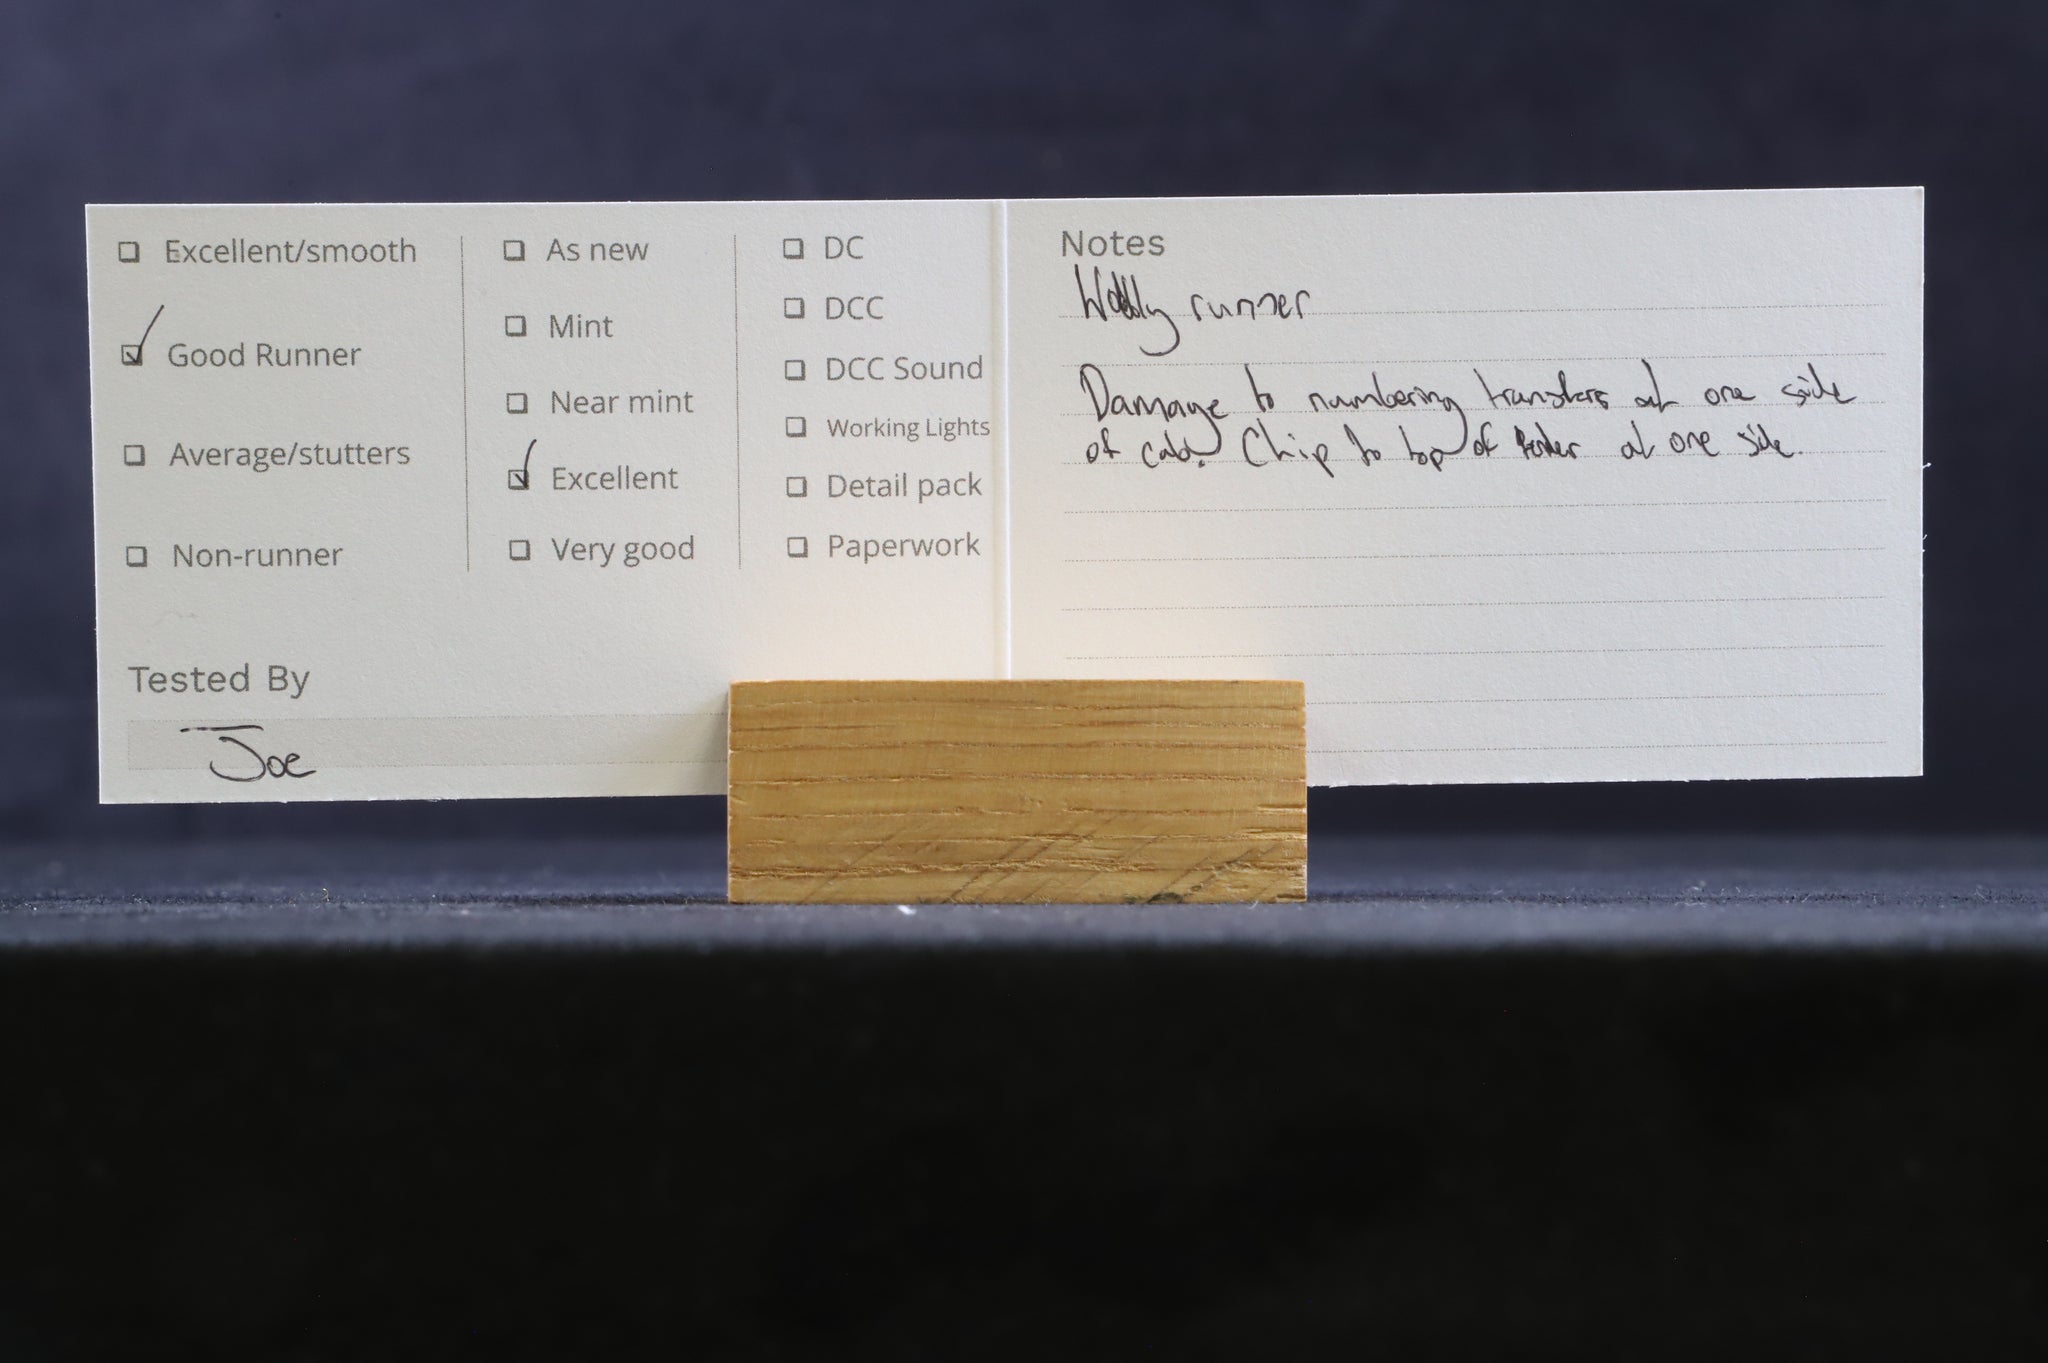 ☐ Excellent/smooth
☑ Good Runner
☐ Average/stutters
☐ Non-runner
☐ As new
☐ Mint
☐ Near mint
☑ Excellent
☐ Very good
☐ DC
☐ DCC
☐ DCC Sound
☐ Working Lights
☐ Detail pack
☐ Paperwork
Tested By
Joe
Notes
Wobbly runner
Damage to numbering transfers at one side
of cab. Chip to top of tender at one side.